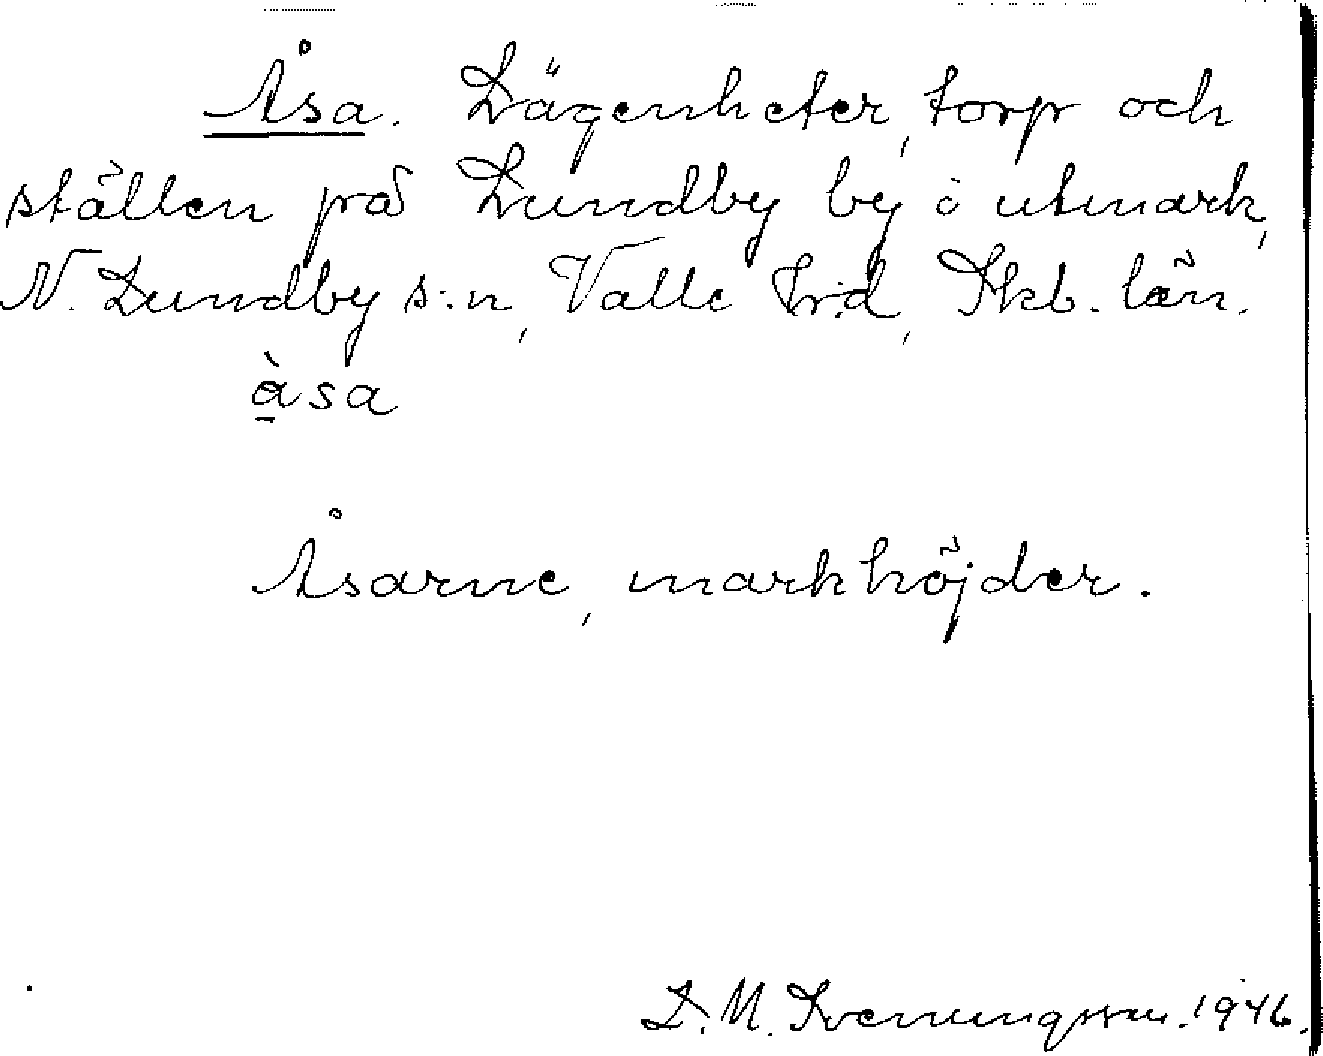 Åsa. Lägenheter, torp och
ställen på Lundby by i utmark,
N. Lundby s:n, Valle h:d, Skb. län.
àsa
Åsarne, markhöjder.
L. M. Svenungsson. 1946.